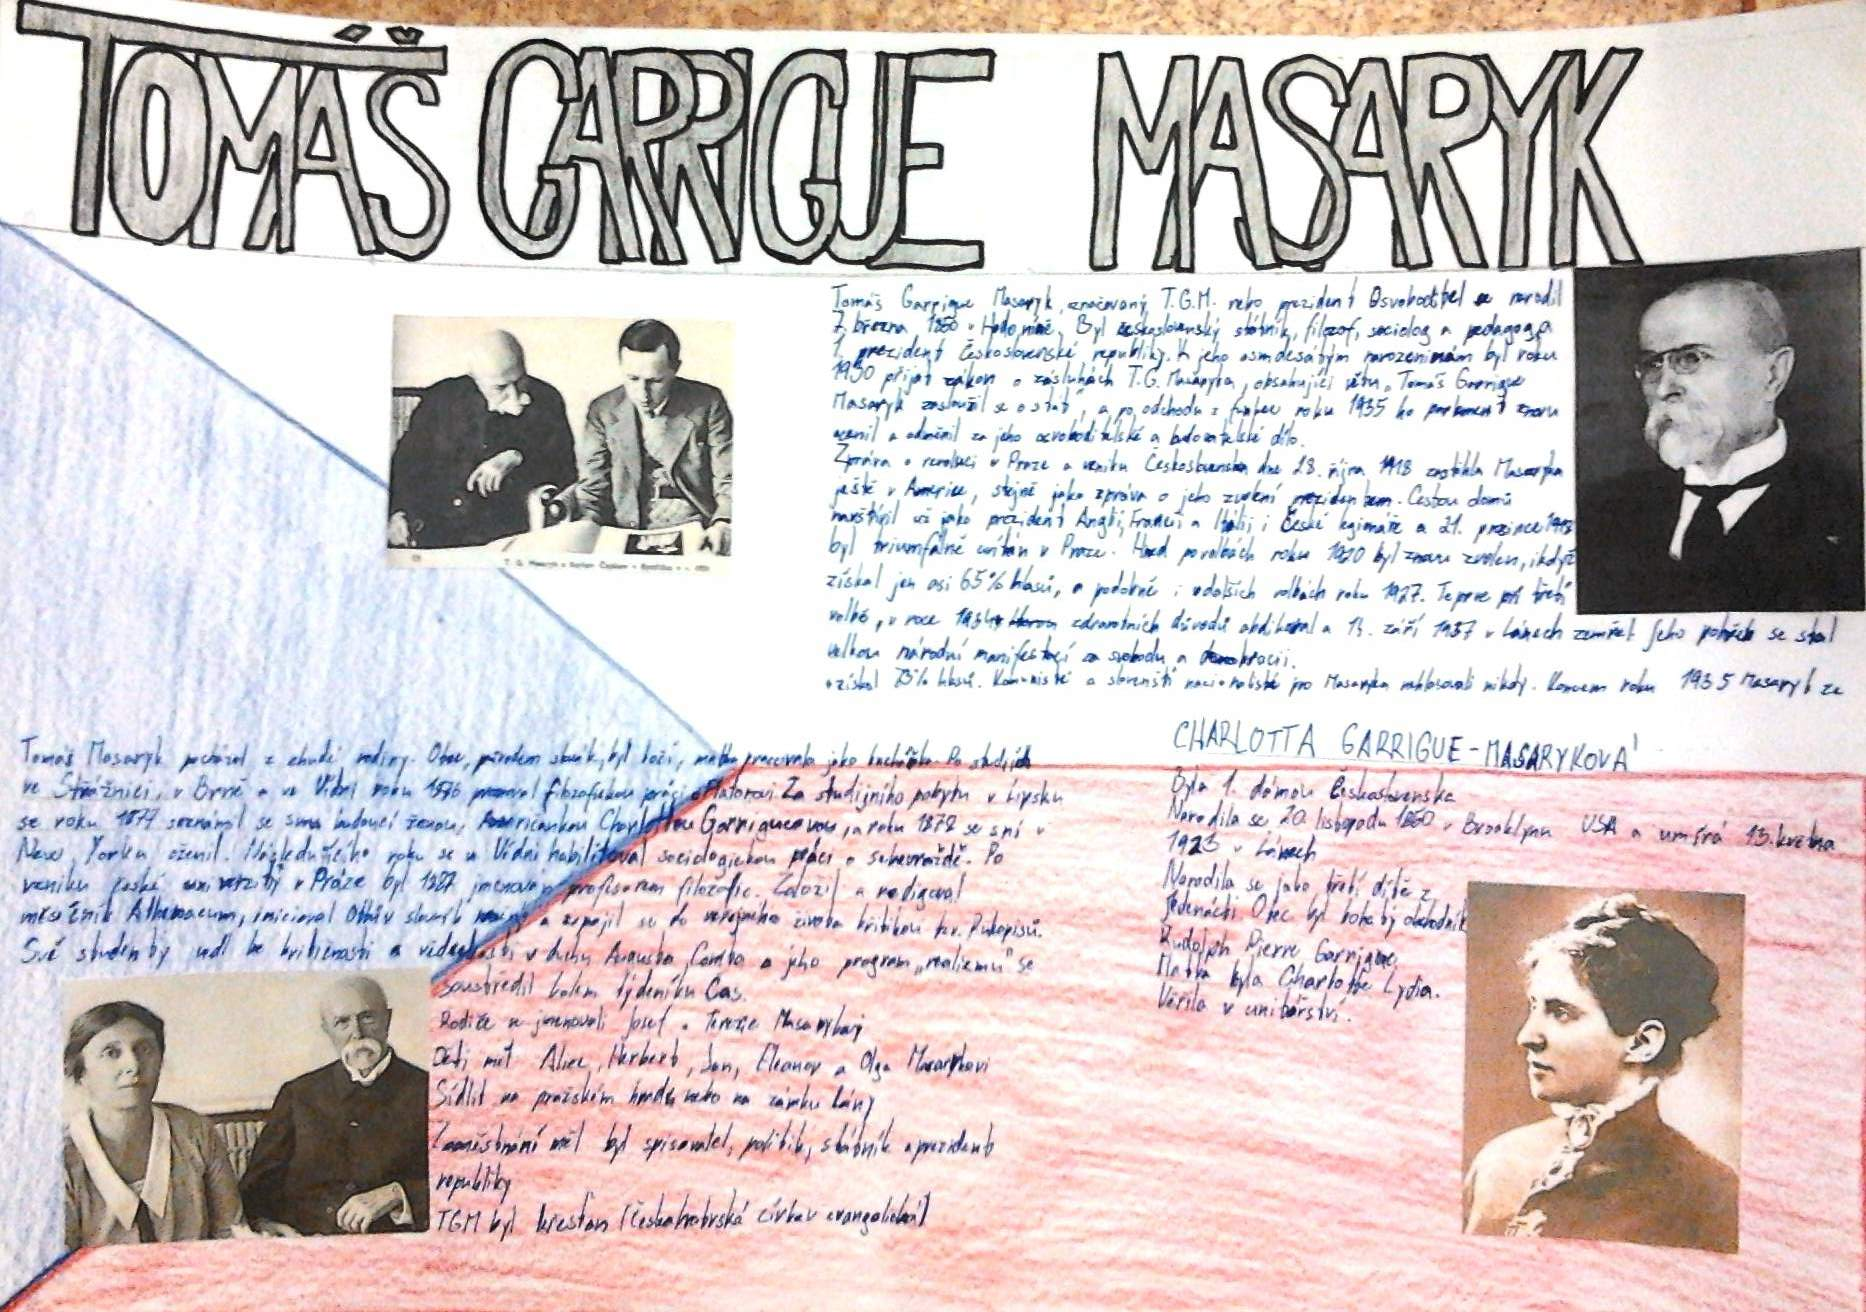 TOMÁŠ GARRIGUE MASARYK
Tomáš Garrigue Masaryk, označovaný T.G.M. nebo prezident Osvoboditel se narodil
7. března 1850 v Hodoníně. Byl československý státník, filozof, sociolog a pedagog, a
1. prezident Československé republiky. K jeho osmdesátým narozeninám byl roku
1930 přijat zákon o zásluhách T.G. Masaryka, obsahující větu „Tomáš Garrigue
Masaryk zasloužil se o stát", a po odchodu z funkce roku 1935 ho parlament znovu
ocenil a odměnil za jeho osvoboditelské a budovatelské dílo.
Zpráva o revoluci v Praze a vzniku Československa dne 28. října 1918 zastihla Masaryka
ještě v Americe, stejně jako zpráva o jeho zvolení prezidentem. Cestou domů
navštívil už jako prezident Anglii, Francii a Itálii i České legionáře a 21. prosince 1918
byl triumfálně uvítán v Praze. Hned po volbách roku 1920 byl znovu zvolen, i když
získal jen asi 65% hlasů, a podobně i v dalších volbách roku 1927. Teprve při třetí
volbě, v roce 1934 zdravotních důvodů abdikoval a 14. září 1937 v Lánech zemřel. Jeho pohřeb se stal
velkou národní manifestací za svobodu a demokracii.
získal 73% hlasů. Komunisté a slovenští nacionalisté pro Masaryka nehlasovali nikdy. Koncem roku 1935 Masaryk ze
Tomáš Masaryk pocházel z chudé rodiny. Otec, původem slovák, byl kočí, matka pracovala jako kuchařka. Po studiích
ve Strážnici, v Brně a ve Vídni roku 1876 filozofickou prací o Platonovi. Za studijního pobytu v Lipsku
se roku 1877 seznámil se svou budoucí ženou, Američankou Charlottou Garrigueovou, a roku 1878 se s ní v
New Yorku oženil. Následujícího roku se ve Vídni habilitoval sociologickou prací o sebevraždě. Po
vzniku české univerzity v Praze byl 1887 jmenován profesorem filozofie. Založil a redigoval
měsíčník Athenaeum, inicioval Ottův slovník naučný a zapojil se do veřejného života kritikou tzv. Rukopisů.
Své studenty vedl ke kritičnosti a vědeckosti v duchu Augusta Comta a jeho program „realismu" se
soustředil kolem týdeníku Čas.
Rodiče se jmenovali Josef a Terezie Masarykovi
Děti měl Alice, Herbert, Jan, Eleanor a Olga Masarykovi
Sídlil na pražském hradu nebo na zámku Lány
Zaměstnání měl byl spisovatel, politik, státník a prezident
republiky
TGM byl křesťan (Českobratrská církev evangelická)
CHARLOTTA GARRIGUE-MASARYKOVÁ
Byla 1. dámou Československa
Narodila se 20. listopadu 1850 v Brooklynu USA a umírá 13. května
1923 v Lánech
Narodila se jako třetí dítě z
jedenácti Otec byl bohatý obchodník
Rudolph Pierre Garrigue
Matka byla Charlotte Lydia.
Věřila v unitářství.